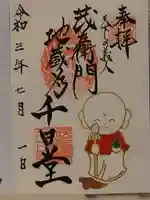 奉拝
茂衛門
地蔵乃
千日堂
令和三年七月一日